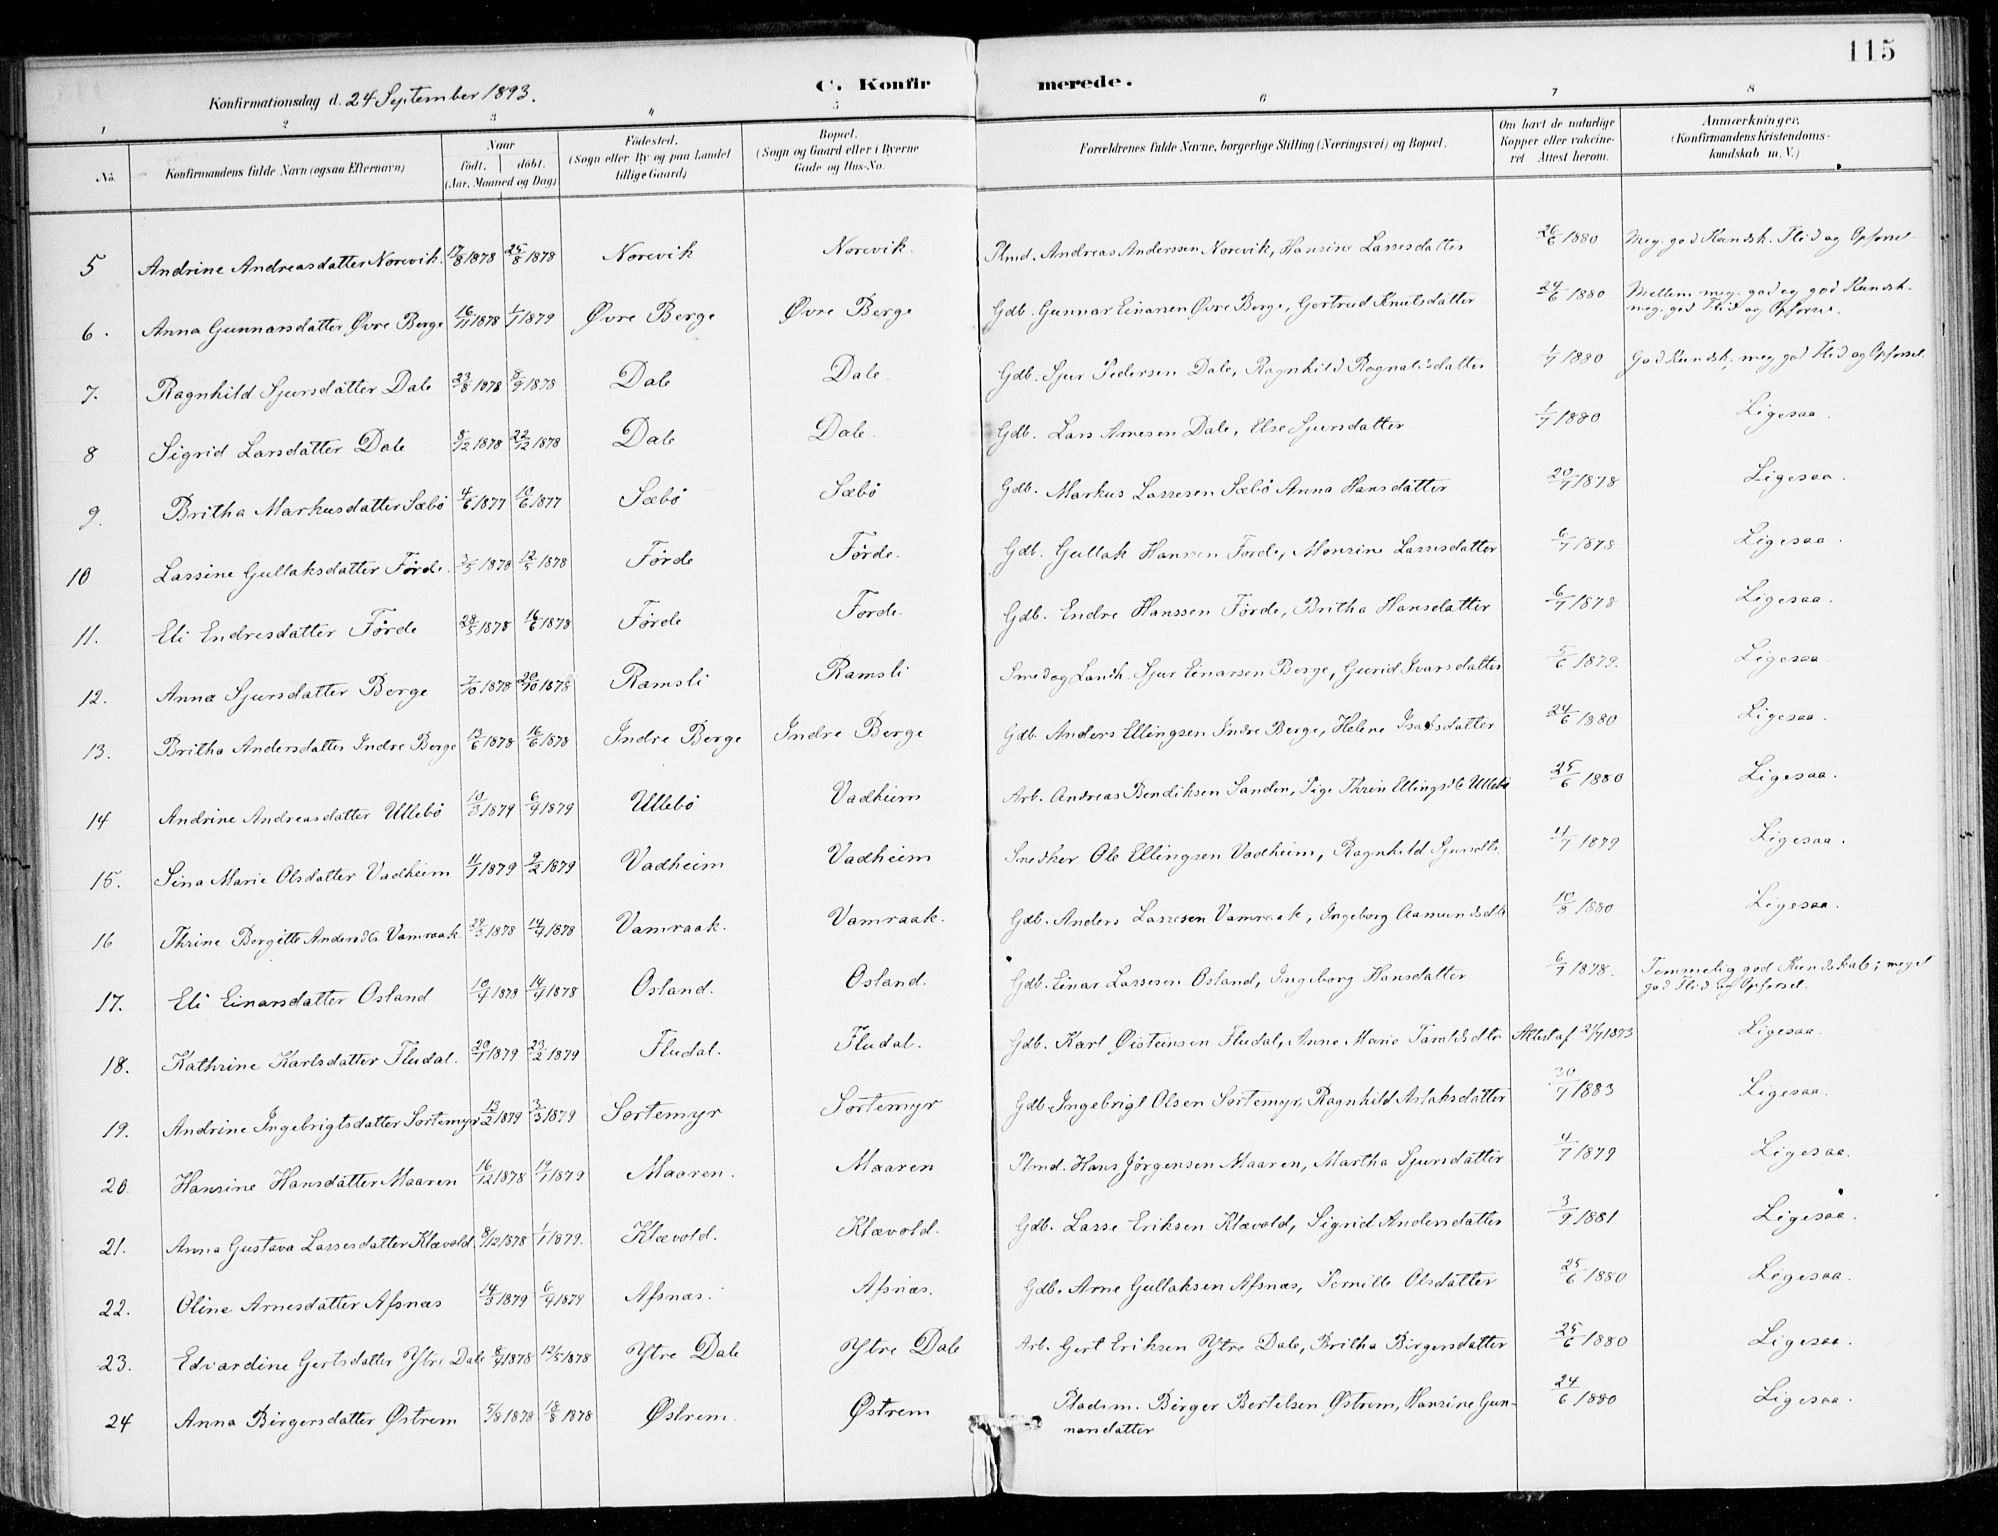 115
Konfirmationsdag d. 24 September 1893.
C. Konfirmerede.
1 2 3 4 5 6 7 8
No.
Konfirmandens fulde Navn (ogsaa Efternavn)
Naar født, døbt. (Aar, Maaned og Dag)
Fødested. (Sogn eller By og paa Landet tillige Gaard)
Bopæl. (Sogn og Gaard eller i Byerne Gade og Hus-No.
Forældrenes fulde Navne, borgerlige Stilling (Næringsvei) og Bopæl.
Om havt de naturlige Kopper eller vakcineret Attest herom.
Anmærkninger. (Konfirmandens Kristendomskundskab m. V.)
5 Andrine Andreasdatter Norevik. 17/8 1878 25/8 1878 Norevik Norevik. Plmd. Andreas Anderssen Norevik, Hansine Lassesdatter 26/6 1880 Meg. god Kundsk. Flid og Opførsel.
6. Anna Gunnarsdatter Øvre Berge 16/11 1878 1/1 1879 Øvre Berge Øvre Berge Gdb. Gunnar Einarsen Øvre Berge, Gertrud Knutsdatter 24/6 1880 Mellem meg. god og god Kundsk. meg. god Flid og Opførsel.
7. Ragnhild Sjursdatter Dale 23/8 1878 8/9 1878 Dale Dale. Gdb. Sjur Pedersen Dale, Ragnhild Ragnaldsdatter 1/7 1880 God Kundsk, meg god Flid og Opførsel.
8 Sigrid Larsdatter Dale 8/12 1878 22/12 1878 Dale Dale. Gdb. Lars Arnesen Dale, Else Sjursdatter 1/7 1880 Ligesaa.
9. Britha Markusdatter Sæbø 4/6 1877 10/6 1877 Sæbø Sæbø Gdb. Markus Lassesen Sæbø Anna Hansdatter 20/7 1878 Ligesaa.
10 Lassine Gullaksdatter Førde. 3/5 1878 12/5 1878 Førde Førde. Gdb. Gullak Hanssen Førde, Monsine Lassesdatter 6/7 1878 Ligesaa.
11. Eli Endresdatter Førde 28/5 1878 16/6 1878 Førde Førde. Gdb. Endre Hanssen Førde, Britha Hansdatter 6/7 1878 Ligesaa.
12. Anna Sjursdatter Berge 7/10 1878 20/10 1878 Ramsli Ramsli Smed og Landh. Sjur Einarsen Berge, Gurid Ivarsdatter 5/6 1879. Ligesaa.
13. Britha Andersdatter Indre Berge 13/6 1878 16/6 1878 Indre Berge Indre Berge Gdb. Anders Ellingsen Indre Berge, Helene Isaksdatter 24/6 1880 Ligesaa.
14 Andrine Andreasdatter Ullebø 10/3 1879 6/4 1879 Ullebø Vadheim Arb. Andreas Bendiksen Sanden, Pige Thrin Ellingsdtr Ullebø 25/6 1880 Ligesaa.
15. Sina Marie Olsdatter Vadheim 11/1 1879 9/2 1879 Vadheim Vadheim Snedker Ole Ellingsen Vadheim, Ragnhild Sjursdtr. 11/7 1879 Ligesaa.
16 Thrine Bergitte Andersdtr Vamraak 29/3 1878 14/4 1878 Vamraak. Vamraak. Gdb. Anders Lassesen Vamraak, Ingeborg Aamundsdtr 10/8 1880 Ligesaa.
17. Eli Einarsdatter Osland 10/4 1878 14/4 1878 Osland. Osland. Gdb. Einar Lassesen Osland, Ingeborg Hansdatter 6/7 1878. Temmelig god Kundskab; meget god Flid og Opførsel.
18. Kathrine Karlsdatter Fludal. 20/1 1879 23/2 1879 Fludal. Fludal. Gdb. Karl Øisteinsen Fludal, Anne Marie Taraldsdtr Attest af 21/7 1893 Ligesaa.
19. Andrine Ingebrigtsdatter Sortemyr 13/2 1879 3/3 1879 Sortemyr Sortemyr Gdb. Ingebrigt Olsen Sortemyr, Ragnhild Aslaksdatter 30/7 1883 Ligesaa.
20. Hansine Hansdatter Maaren 16/12 1878 19/1 1879 Maaren. Maaren Plmd. Hans Jørgensen Maaren, Martha Sjursdatter 4/7 1879 Ligesaa.
21. Anna Gustava Lassesdatter Klævold. 8/12 1878 1/1 1879. Klævold. Klævold. Gdb. Lasse Eriksen Klævold, Sigrid Andersdatter 3/9 1881 Ligesaa.
22. Oline Arnesdatter Afsnæs 14/3 1879 6/4 1879 Afsnæs. Afsnæs. Gdb. Arne Gullaksen Afsnæs, Pernille Olsdatter 25/6 1880 Ligesaa.
23. Edvardine Gertsdatter Ytre Dale 8/4 1878 12/5 1878 Ytre Dale Ytre Dale Arb. Gert Eriksen Ytre Dale, Britha Birgersdatter 25/6 1880 Ligesaa.
24 Anna Birgersdatter Østrem 5/8 1878 18/8 1878 Østrem. Østrem Pladsm. Birger Bertelsen Østrem, Hansine Gunnarsdatter 24/6 1880 Ligesaa.